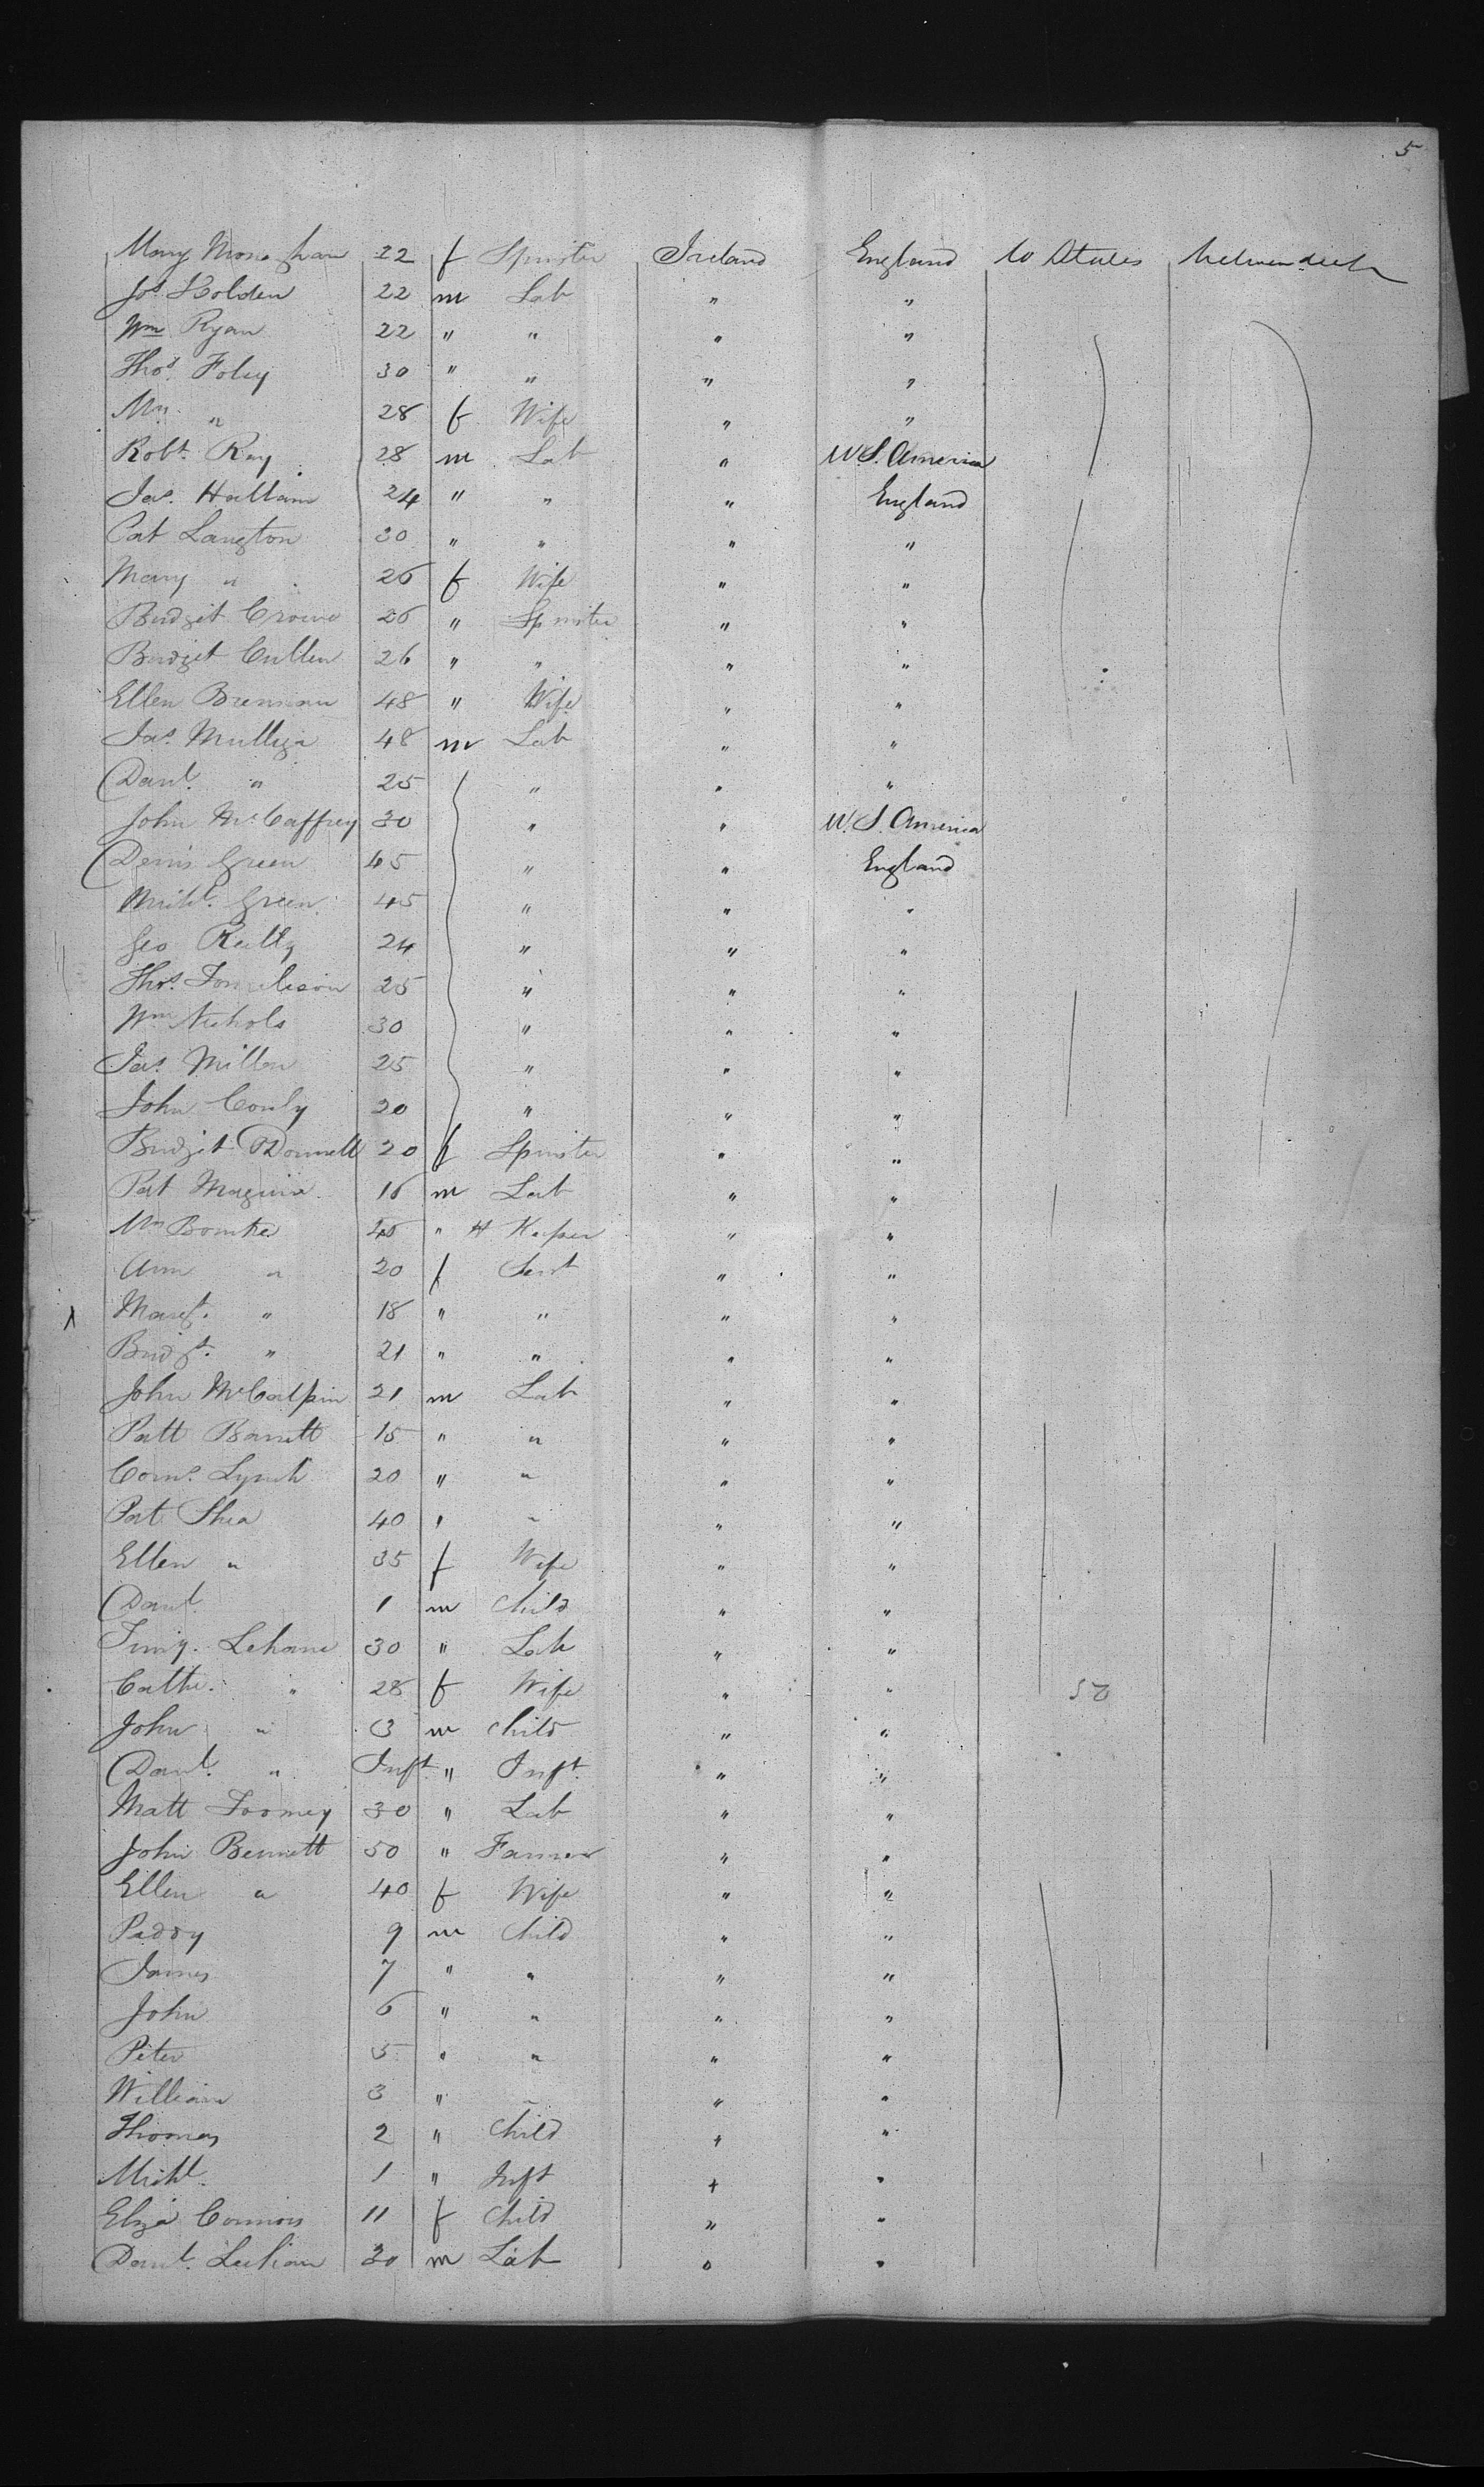 5
Mary Monaghan 22 f Spinster Ireland England U States Between deck
Jos Holden 22 m Lab " "
Wm Ryan 22 " " " "
Thos. Foley 30 " " " "
Mrs " 28 f Wife " "
Robt. Ray 28 m Lab " U.S. America
Jas. Hallam 24 " " " England
Pat Langton 30 " " " "
Mary " 26 f Wife " "
Bridget Crowe 26 " Spinster " "
Bridget Cullen 26 " " " "
Ellen Brennan 48 " Wife " "
Jas. Mulliga 48 m Lab " "
Danl. " 25 " " "
John McCaffrey 30 " " U.S. America
Denis Green 45 " " England
Michl. Green 45 " " "
Geo Reilly 24 " " "
Thos. Tomlison 25 " " "
Wm Nichols 30 " " "
Jas. Millon 25 " " "
John Conly 20 " " "
Bridget Donnell 20 f Spinster " "
Pat Maguire 16 m Lab " "
Mrs Bourke 45 " H Keeper " "
Ann " 20 f Servt " "
Margt. " 18 " " " "
Bridgt. " 21 " " " "
John McCalpin 21 m Lab " "
Patt Barrett 15 " " " "
Corns. Lynch 20 " " " "
Pat Shea 40 " " " "
Ellen " 35 f Wife " "
Danl. 1 m Child " "
Timy. Lehane 30 " Lab " "
Cathe. " 28 f Wife " "
John " 3 m Child " "
Danl. " Inft. " Inft. " "
Matt Toomey 30 " Lab " "
John Bennett 50 " Farmer " "
Ellen " 40 f Wife " "
Paddy 9 m Child " "
James 7 " " " "
John 6 " " " "
Peter 5 " " " "
William 3 " " " "
Thomas 2 " Child " "
Michl. 1 " Inft " "
Eliza Connors 11 f Child " "
Danl. Leehan 30 m Lab " "